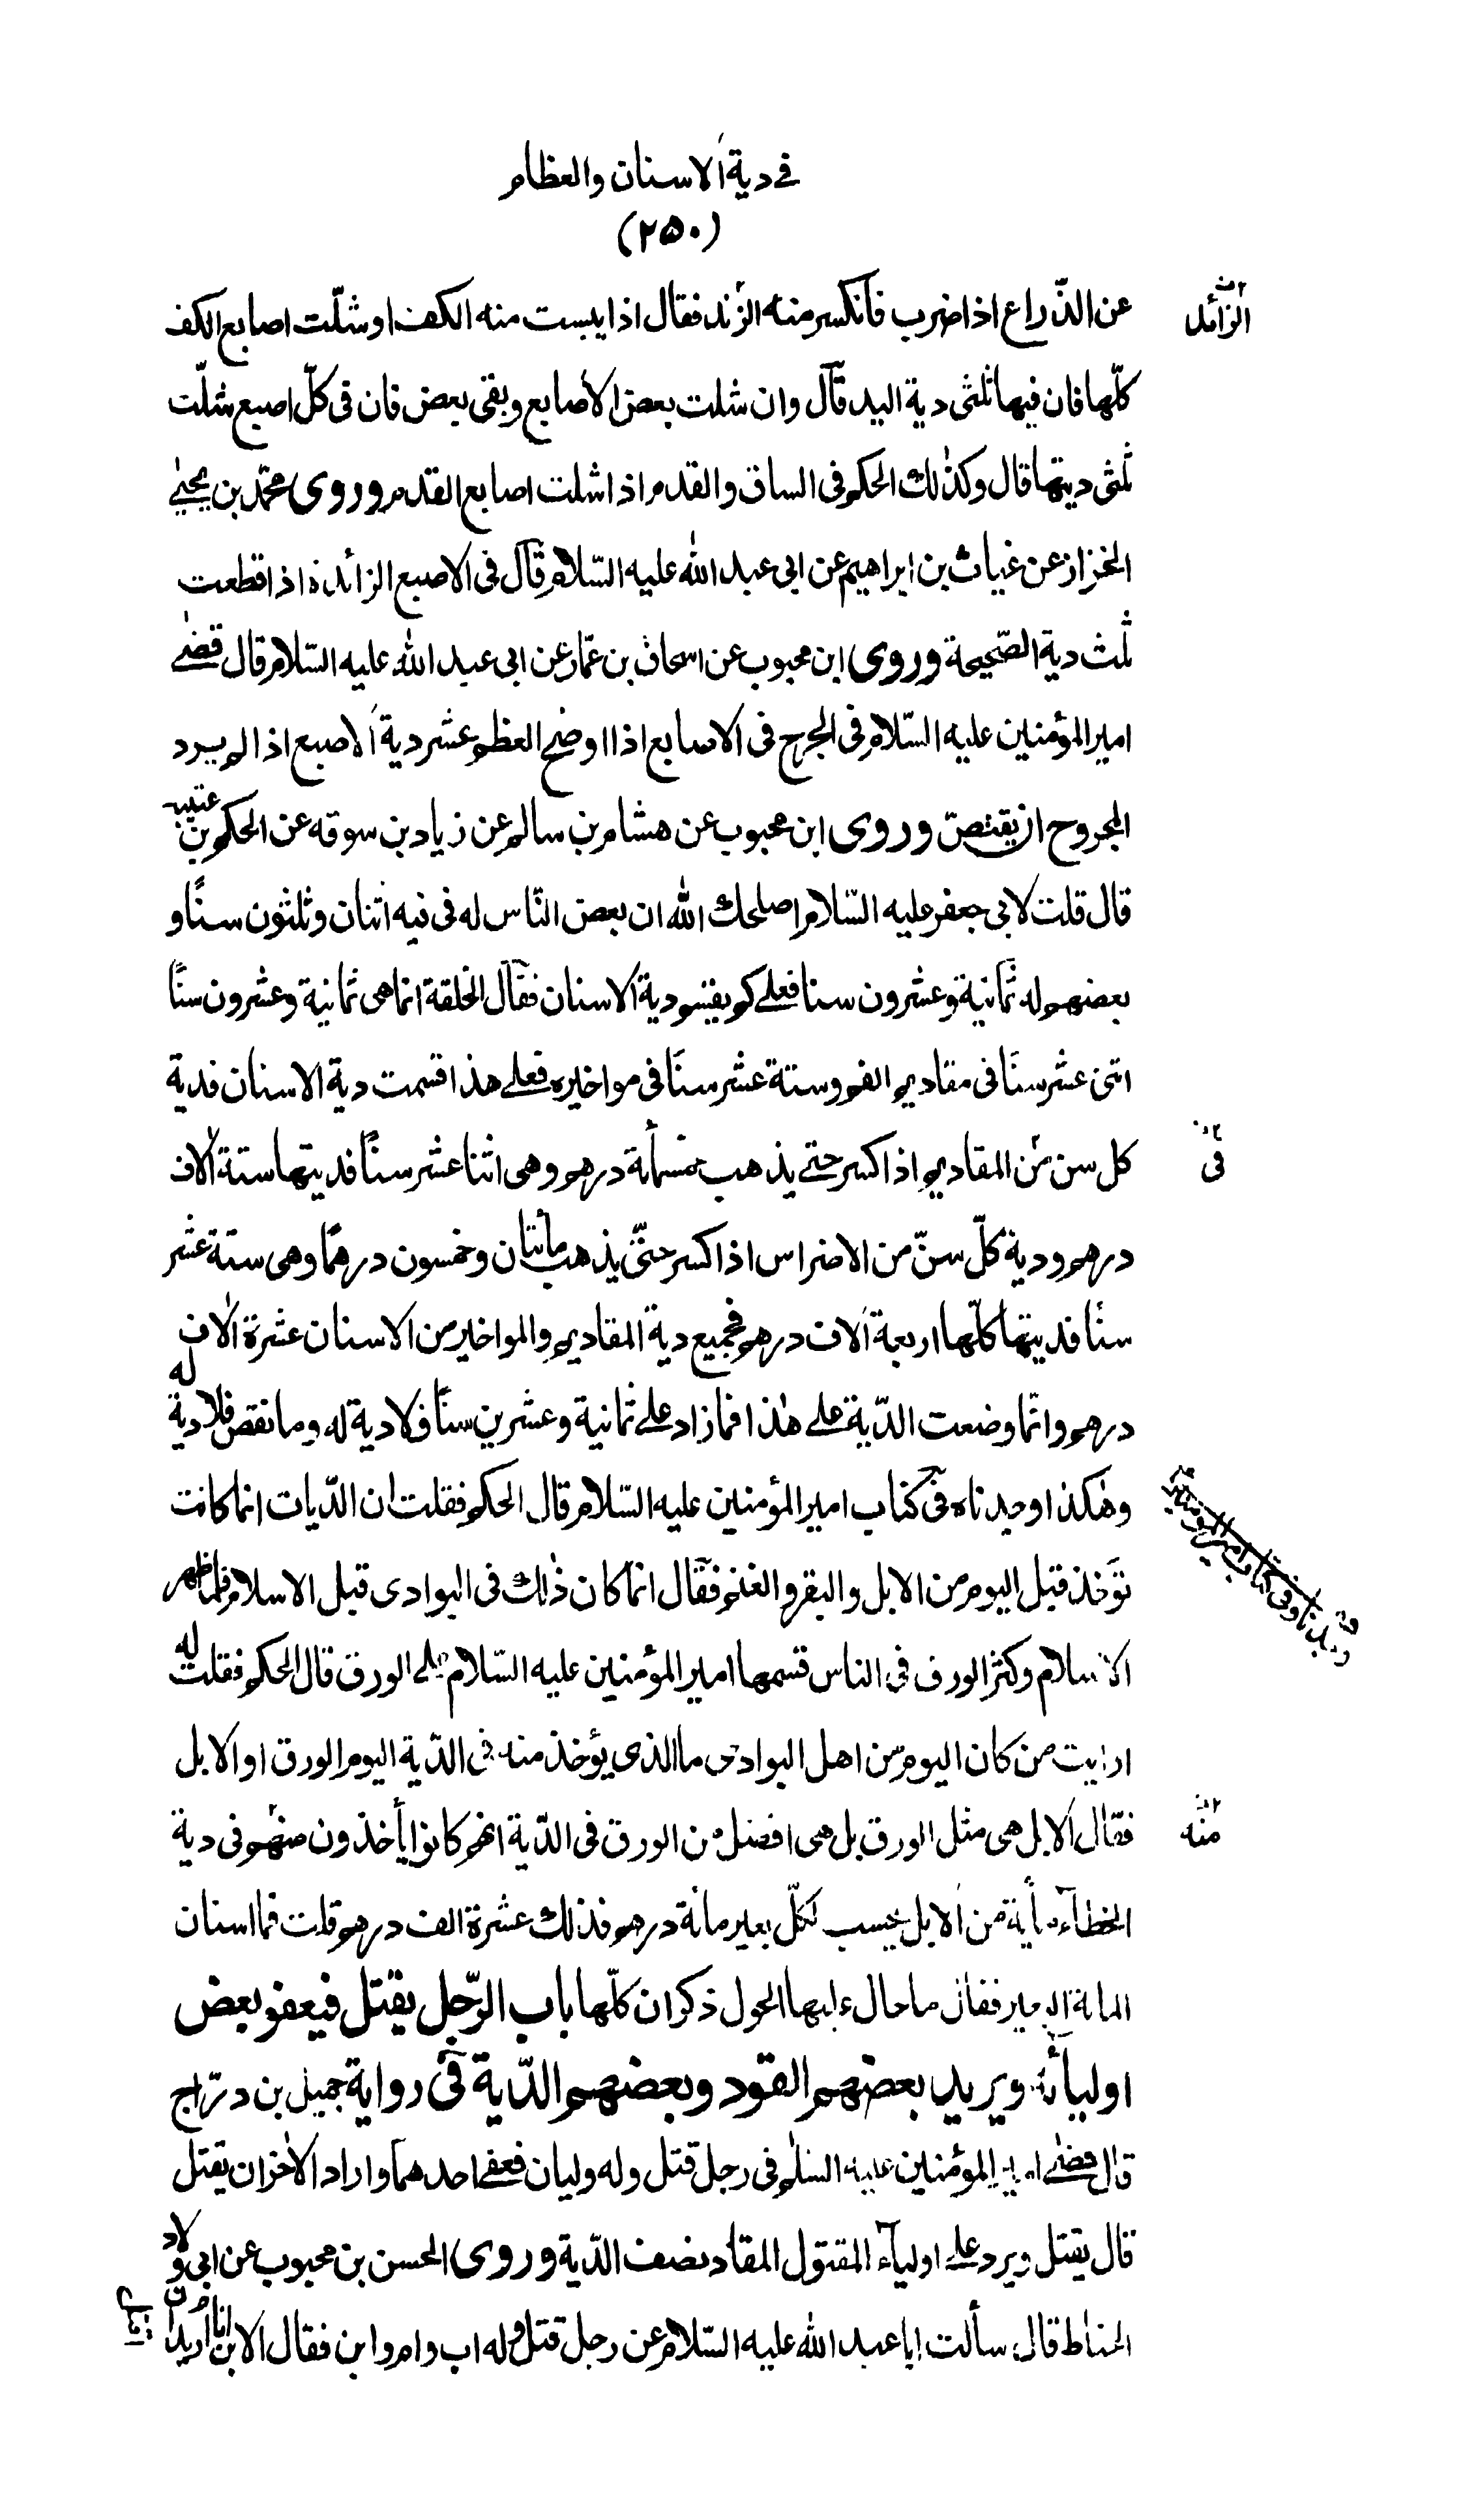 في دية الاسنان والعظام
(۲۵۰)
عن الذّراع اذا ضرب فانكسر منه الزند فقال اذا يبست منه الكف او شلّت اصابع الكف
الزائد
كلّها فان فيها ثلثى دية اليد قال وان شلت بعض الاصابع وبقى بعض فان فى كلّ اصبع شلّت
ثلثى ديتها قال وكذلك الحكم فى الساق والقدم اذا شلت اصابع القدم وروى محمّد بن يحيى
الخزاز عن غياث بن ابراهيم عن ابى عبد الله عليه السّلام قال فى الاصبع الزائدة اذا قطعت
ثلث دية الصّحيحة وروى ابن محبوب عن اسحاق بن عمّار عن ابى عبد الله عليه السّلام قال قضى
امير المؤمنين عليه السّلام فى الجرح فى الاصابع اذا اوضح العظم عشر دية الاصبع اذا لم يرد
المجروح ان يقتصّ وروى ابن محبوب عن هشام بن سالم عن زياد بن سوقه عن الحكم بن عتيبه
قال قلت لابى جعفر عليه السّلام اصلحك الله ان بعض النّاس له فى فيه اثنان وثلثون سنًا و
بعضهم له ثمانية وعشرون سنا فعلى كم يقسم دية الاسنان فقال الخلقة انما هى ثمانية وعشرون سنًا
اثنى عشر سنًا فى مقاديم الفم وستة عشر سنًا فى مواخيره فعلى هذا قسمت دية الاسنان فدية
كل سن من المقاديم اذا كسر حتى يذهب خمسمأئة درهم وهى اثنا عشر سنًا فديتها ستة الاف
فى
درهم ودية كلّ سنّ من الاضراس اذا كسر حتّى يذهب مأئتان وخمسون درهمًا وهى ستة عشر
سنًا فديتها كلّها اربعة آلاف درهم فجميع دية المقاديم والمواخير من الاسنان عشرة الاف
درهم وانّما وضعت الدّية على هذا فما زاد على ثمانية وعشرين سنًا فلا دية له وما نقص فلا دية له
وهكذا وجدناه فى كتاب امير المؤمنين عليه السّلام قال الحكم فقلت ان الدّيات انما كانت
تؤخذ قبل اليوم من الابل والبقر والغنم فقال انما كان ذلك فى البوادى قبل الاسلام فلما ظهر
الاسلام وكثر الورق فى الناس قسمها امير المؤمنين عليه السّلام على الورق قال الحكم فقلت له
ارايت من كان اليوم من اهل البوادى ما الذى يؤخذ منه فى الدّية اليوم الورق او الابل
فقال الابل هى مثل الورق بل هى افضل من الورق فى الدّية انهم كانوا يأخذون منهم فى دية
منه
الخطاء مأية من الابل يحسب لكلّ بعير مائة درهم فذلك عشرة الف درهم قلت فما اسنان
المائة البعير فقال ما حال عليها الحول ذكران كلّها باب الرّجل يقتل فيعفو بعض
اوليائه ويريد بعضهم القود وبعضهم الدّية فى رواية جميل بن درّاج
قال قضى امير المؤمنين عليه السّلم فى رجل قتل وله وليان فعفى احدهما واراد الاخر ان يقتل
قال يقتل ويرد على اولياء المقتول المقاد نصف الدّية وروى الحسن بن محبوب عن ابى ولاد
الحناط قال سألت ابا عبد الله عليه السّلام عن رجل قتل وله اب وام وابن فقال الابن انا اريد ان